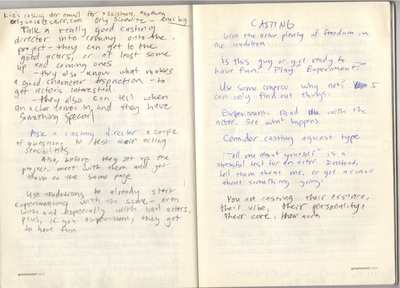 casting dir email for
Talk a really good casting
director into coming onto the
project - they can get to the
good actors, or at least some
up and coming ones
- they also know what makes
a good character description - to
get actors interested
- they also can tell when
an actor comes in and they have
something special
Ask a casting director a couple
of questions to test their acting
sensibilities
Also, before they set up the
project, meet with them and get
down on the same page
Use auditions to already start
experimenting with the scene - even
with and especially with bad actors,
plus, if you experiment, they get
to have fun
CASTING
Give the actor plenty of freedom in
the audition
Is this guy or girl ready to
have fun? Play? Experiment?
Use some improv why not?
can only find out things.
Experiment. Read with the
actor. See what happens.
Consider casting against type
"Tell me about yourself" is a
stressful test for an actor. Instead,
tell them about me, or get a convo
about something going.
You are casting their essence,
their vibe, their personality,
their core, their aura